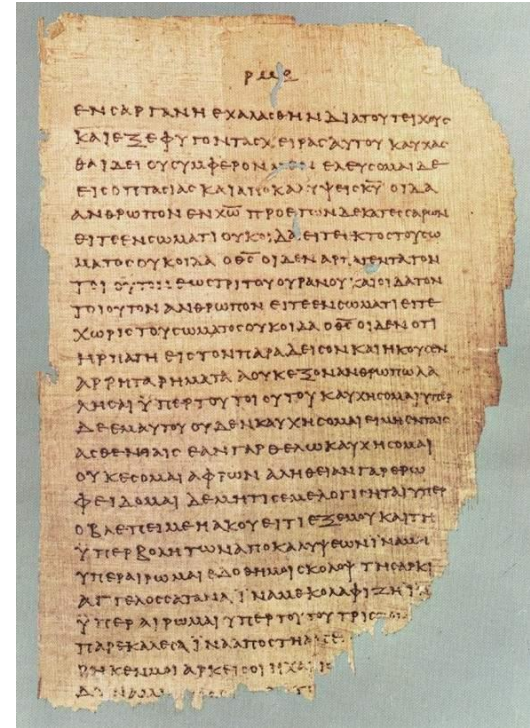 ΡΜΘ
ΕΝ ΣΑΡΓΑΝΗ ΕΧΑΛΑΣΘΗΝ ΔΙΑ ΤΟΥ ΤΕΙΧΟΥΣ
ΚΑΙ ΕΞΕΦΥΓΟΝ ΤΑΣ ΧΕΙΡΑΣ ΑΥΤΟΥ ΚΑΥΧΑΣ
ΘΑΙ ΔΕΙ ΟΥ ΣΥΜΦΕΡΟΝ ΕΛΕΥΣΟΜΑΙ ΔΕ
ΕΙΣ ΟΠΤΑΣΙΑΣ ΚΑΙ ΑΠΟΚΑΛΥΨΕΙΣ ΚΥ ΟΙΔΑ
ΑΝΘΡΩΠΟΝ ΕΝ ΧΩ ΠΡΟ ΕΤΩΝ ΔΕΚΑΤΕΣΣΑΡΩΝ
ΕΙΤΕ ΕΝ ΣΩΜΑΤΙ ΟΥΚ ΟΙΔΑ ΕΙΤΕ ΕΚΤΟΣ ΤΟΥ ΣΩ
ΜΑΤΟΣ ΟΥΚ ΟΙΔΑ Ο ΘΣ ΟΙΔΕΝ ΑΡΠΑΓΕΝΤΑ ΤΟΝ
ΕΩΣ ΤΡΙΤΟΥ ΟΥΡΑΝΟΥ ΚΑΙ ΟΙΔΑ ΤΟΝ
ΤΟΙΟΥΤΟΝ ΑΝΘΡΩΠΟΝ ΕΙΤΕ ΕΝ ΣΩΜΑΤΙ ΕΙΤΕ
ΧΩΡΙΣ ΤΟΥ ΣΩΜΑΤΟΣ ΟΥΚ ΟΙΔΑ Ο ΘΣ ΟΙΔΕΝ ΟΤΙ
ΗΡΠΑΓΗ ΕΙΣ ΤΟΝ ΠΑΡΑΔΕΙΣΟΝ ΚΑΙ ΗΚΟΥΣΕΝ
ΑΡΡΗΤΑ ΡΗΜΑΤΑ Α ΟΥΚ ΕΞΟΝ ΑΝΘΡΩΠΩ ΛΑ
ΛΗΣΑΙ ΫΠΕΡ ΤΟΥ ΤΟΙΟΥΤΟΥ ΚΑΥΧΗΣΟΜΑΙ ΥΠΕΡ
ΔΕ ΕΜΑΥΤΟΥ ΟΥΔΕΝ ΚΑΥΧΗΣΟΜΑΙ ΕΙ ΜΗ ΕΝ ΤΑΙΣ
ΑΣΘΕΝΙΑΙΣ ΕΑΝ ΓΑΡ ΘΕΛΩ ΚΑΥΧΗΣΟΜΑΙ
ΟΥΚ ΕΣΟΜΑΙ ΑΦΡΩΝ ΑΛΗΘΕΙΑΝ ΓΑΡ ΕΡΩ
ΦΕΙΔΟΜΑΙ ΔΕ ΜΗ ΤΙΣ ΕΜΕ ΛΟΓΙΣΗΤΑΙ ΥΠΕΡ
Ο ΒΛΕΠΕΙ ΜΕ Η ΑΚΟΥΕΙ ΤΙ ΕΞ ΕΜΟΥ ΚΑΙ ΤΗ
ΫΠΕΡΒΟΛΗ ΤΩΝ ΑΠΟΚΑΛΥΨΕΩΝ ΙΝΑ ΜΗ
ΥΠΕΡΑΙΡΩΜΑΙ ΕΔΟΘΗ ΜΟΙ ΣΚΟΛΟΨ ΤΗ ΣΑΡΚΙ
ΑΓΓΕΛΟΣ ΣΑΤΑΝΑ ΪΝΑ ΜΕ ΚΟΛΑΦΙΖΗ ΪΝΑ
ΫΠΕΡΑΙΡΩΜΑΙ ΥΠΕΡ ΤΟΥΤΟΥ ΤΡΙΣ
ΠΑΡΕΚΑΛΕΣΑ ΪΝΑ ΑΠΟΣΤΗ
ΡΗΚΕΝ ΜΟΙ ΑΡΚΕΙ ΣΟΙ Η ΧΑΡΙΣ